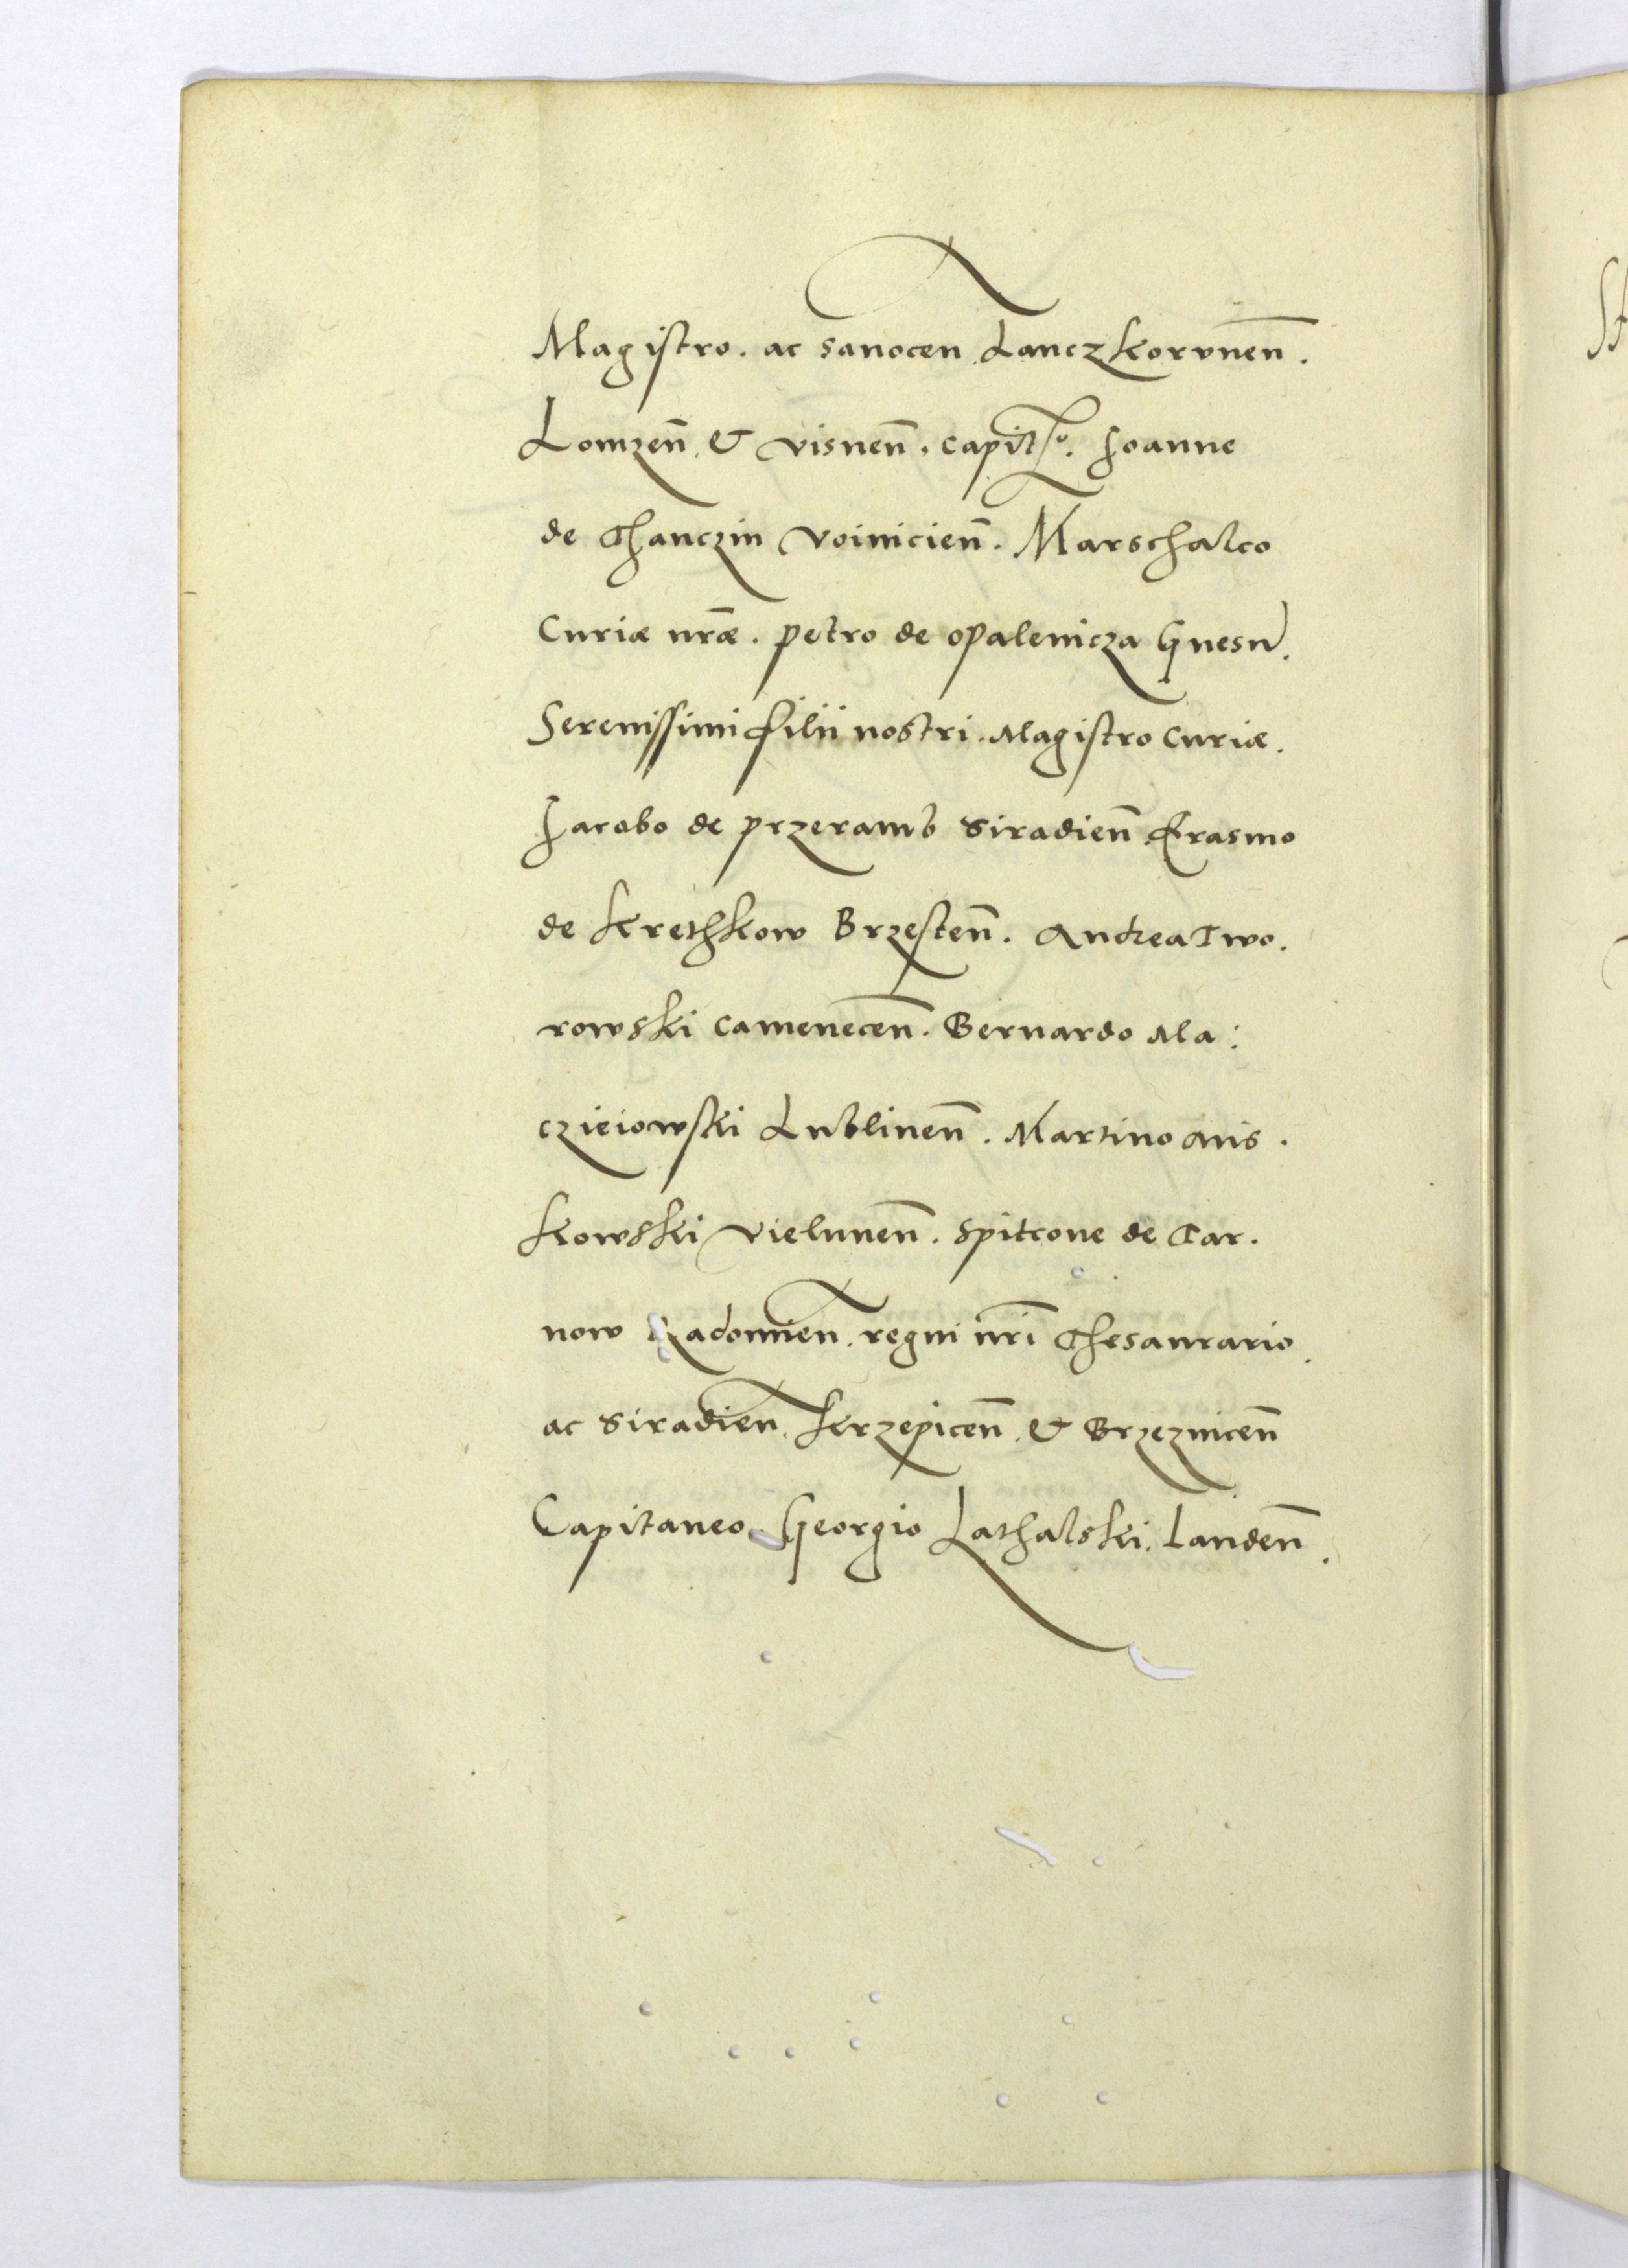 Magistro. ac Sanocen̄. Lanczkorunen̄.
Lomzen̄. & Visnen̄. Capit̃o. Joanne
de Thanczin Voinicien̄. Marschalco
Curiæ nr̄æ. Petro de Opalenicza Gnesn̄.
Serenissimi filii nostri. Magistro Curiæ.
Jacobo de Przeramb Siradien̄. Erasmo
de Krethkow Brzesten̄. Andrea Two.
rowski Camenecen̄. Bernardo Ma:
czieiowski Lublinen̄. Martino Mis.
kowski Vielunen̄. Spitcone de Tar.
now Radomien̄. regni nr̄i Thesaurario.
ac Siradien̄. Krzepicen̄. & Brzeznicen̄
Capitaneo. Georgio Lathalski. Landen̄.